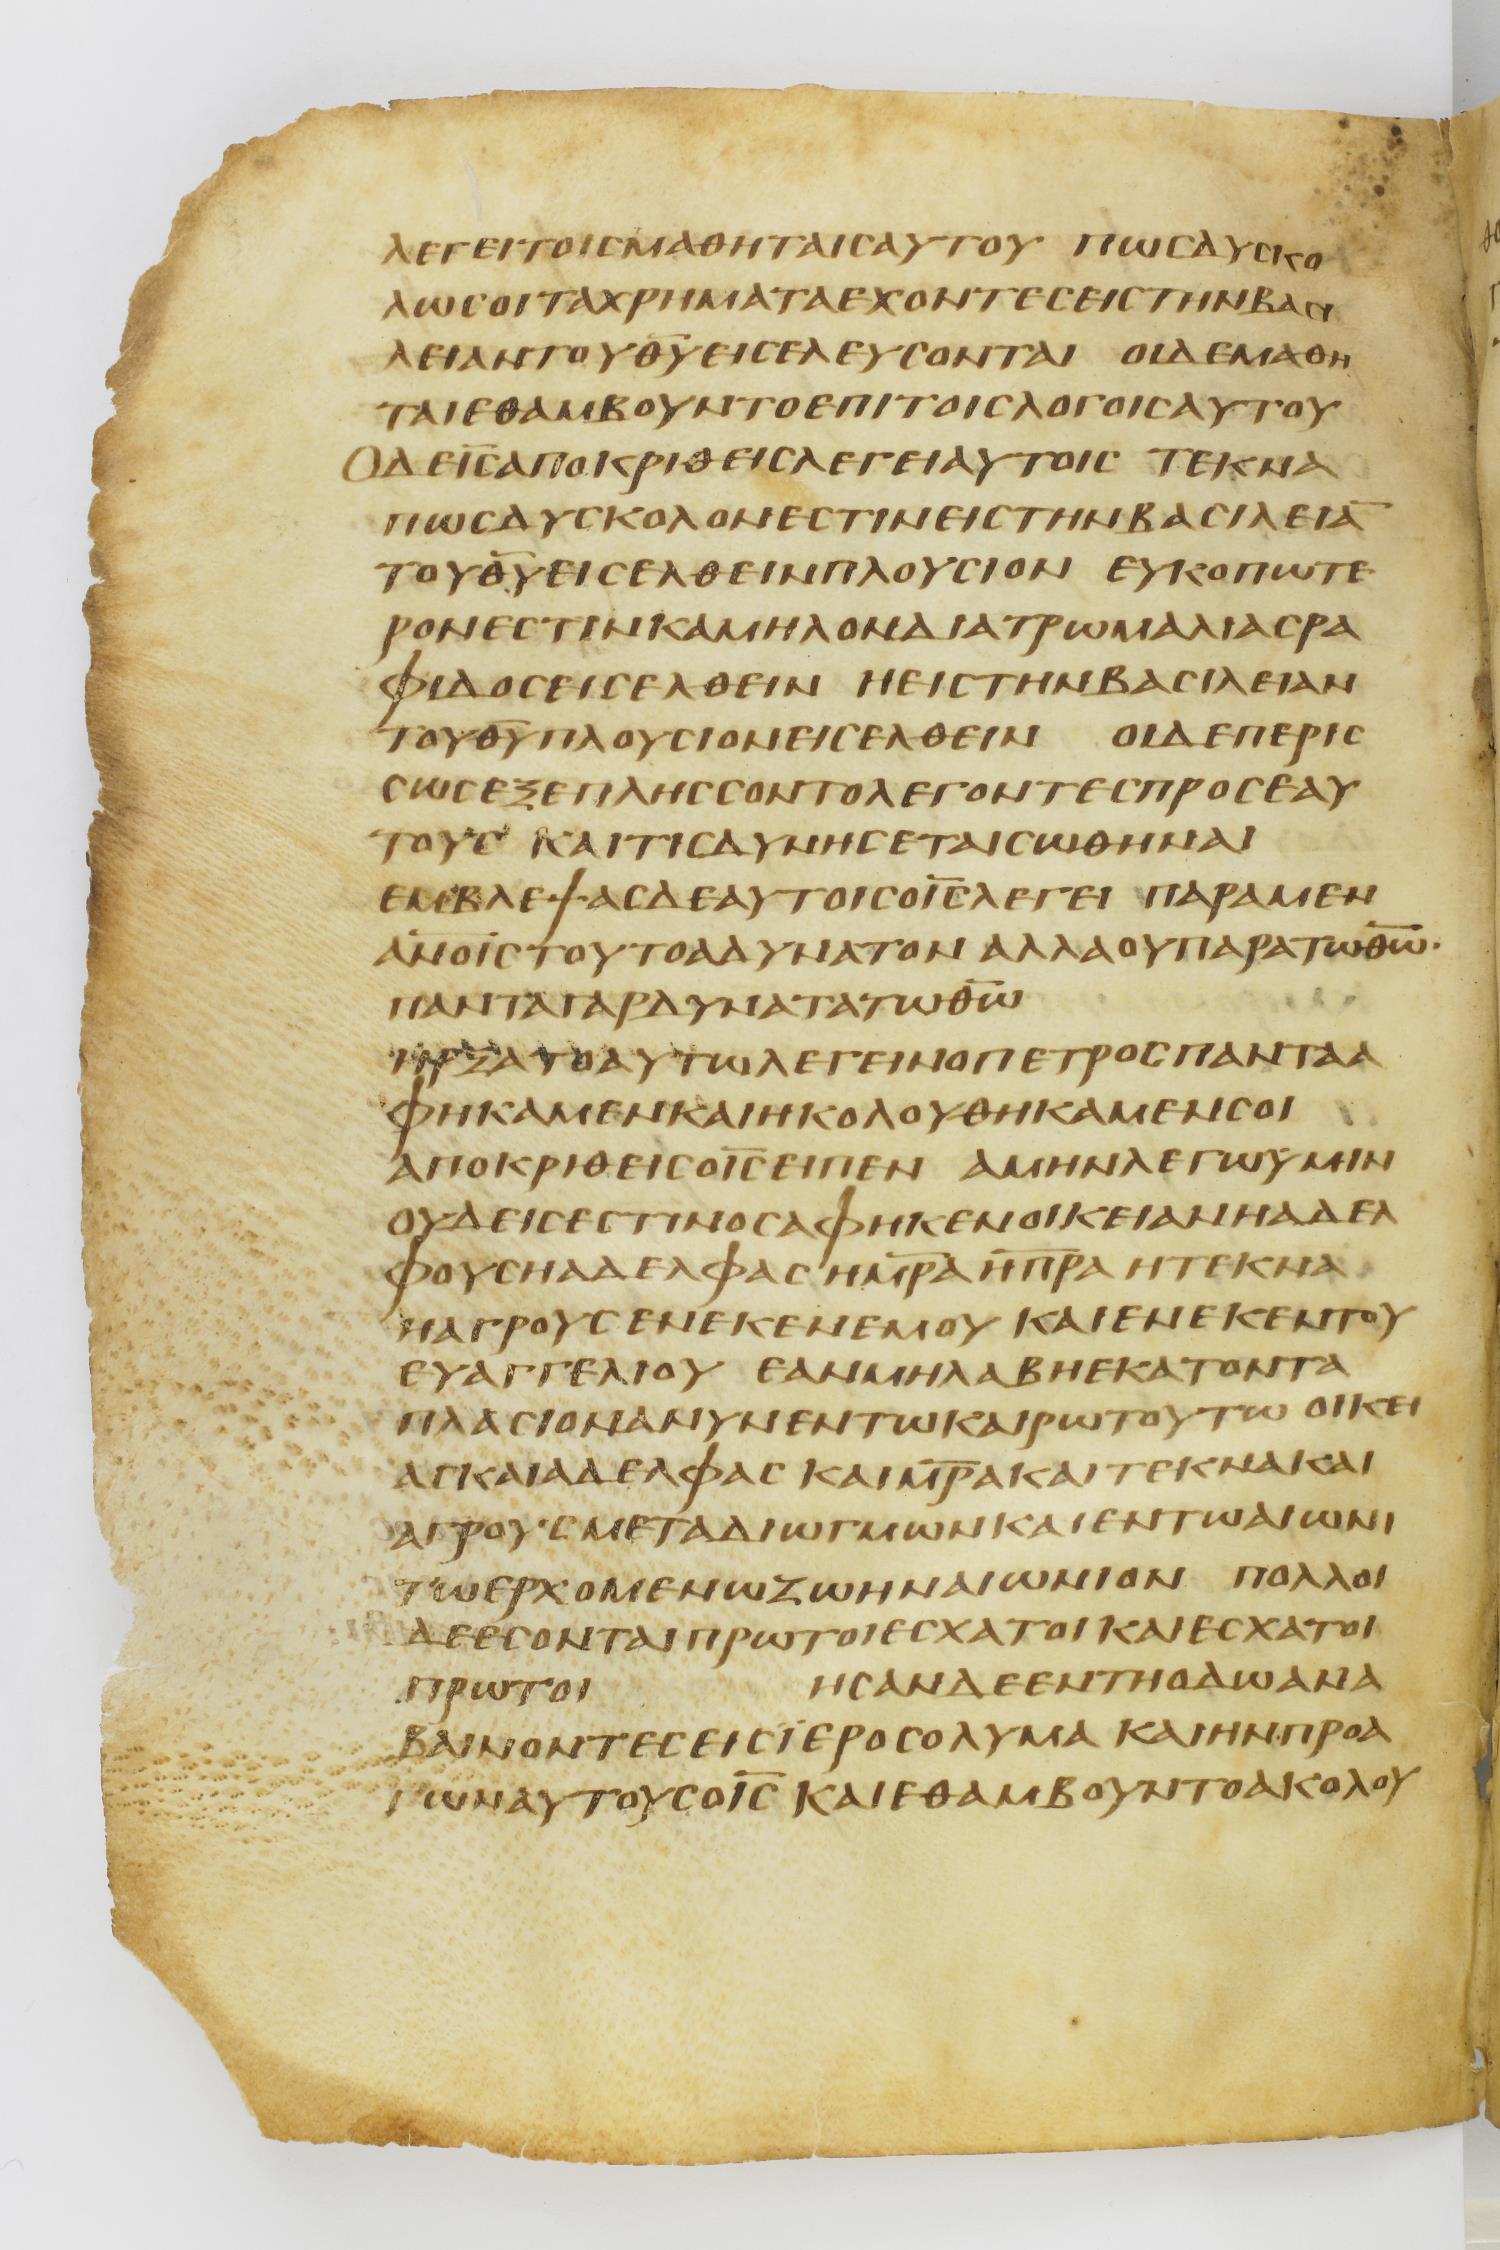 ΛΕΓΕΙΤΟΙСΜΑΘΗΤΑΙСΑΥΤΟΥ ΠΩСΔΥСΚΟ
ΛΩСΟΙΤΑΧΡΗΜΑΤΑΕΧΟΝΤΕСΕΙСΤΗΝΒΑСΙ
ΛΕΙΑΝΤΟΥΘ̅Υ̅ΕΙСΕΛΕΥСΟΝΤΑΙ ΟΙΔΕΜΑΘΗ
ΤΑΙΕΘΑΜΒΟΥΝΤΟΕΠΙΤΟΙСΛΟΓΟΙСΑΥΤΟΥ
ΟΔΕΙ̅С̅ΑΠΟΚΡΙΘΕΙСΛΕΓΕΙΑΥΤΟΙС ΤΕΚΝΑ
ΠΩСΔΥСΚΟΛΟΝΕСΤΙΝΕΙСΤΗΝΒΑСΙΛΕΙΑ̅
ΤΟΥΘ̅Υ̅ΕΙСΕΛΘΕΙΝΠΛΟΥСΙΟΝ ΕΥΚΟΠΩΤΕ
ΡΟΝΕСΤΙΝΚΑΜΗΛΟΝΔΙΑΤΡΩΜΑΛΙΑСΡΑ
ΦΙΔΟСΕΙСΕΛΘΕΙΝ ΗΕΙСΤΗΝΒΑСΙΛΕΙΑΝ
ΤΟΥΘ̅Υ̅ΠΛΟΥСΙΟΝΕΙСΕΛΘΕΙΝ ΟΙΔΕΠΕΡΙС
СΩСΕΞΕΠΛΗССΟΝΤΟΛΕΓΟΝΤΕСΠΡΟСΕΑΥ
ΤΟΥС ΚΑΙΤΙСΔΥΝΗСΕΤΑΙСΩΘΗΝΑΙ
ΕΜΒΛΕΨΑСΔΕΑΥΤΟΙСΟΙ̅С̅ΛΕΓΕΙ ΠΑΡΑΜΕΝ
Α̅Ν̅Ο̅Ι̅С̅ΤΟΥΤΟΑΔΥΝΑΤΟΝ ΑΛΛΑΟΥΠΑΡΑΤΩΘ̅Ω̅·
ΠΑΝΤΑΓΑΡΔΥΝΑΤΑΤΩΘ̅Ω̅
ΗΡΞΑΤΟΑΥΤΩΛΕΓΕΙΝΟΠΕΤΡΟСΠΑΝΤΑΑ
ΦΗΚΑΜΕΝΚΑΙΗΚΟΛΟΥΘΗΚΑΜΕΝСΟΙ
ΑΠΟΚΡΙΘΕΙСΟΙ̅С̅ΕΙΠΕΝ ΑΜΗΝΛΕΓΩΥΜΙΝ
ΟΥΔΕΙСΕСΤΙΝΟСΑΦΗΚΕΝΟΙΚΕΙΑΝΗΑΔΕΛ
ΦΟΥСΗΑΔΕΛΦΑС ΗΜ̅Ρ̅Α̅ΗΠ̅Ρ̅Α̅ ΗΤΕΚΝΑ
ΗΑΓΡΟΥСΕΝΕΚΕΝΕΜΟΥ ΚΑΙΕΝΕΚΕΝΤΟΥ
ΕΥΑΓΓΕΛΙΟΥ ΕΑΝΜΗΛΑΒΗΕΚΑΤΟΝΤΑ
ΠΛΑСΙΟΝΑΝΥΝΕΝΤΩΚΑΙΡΩΤΟΥΤΩ ΟΙΚΕΙ
ΑСΚΑΙΑΔΕΛΦΑС ΚΑΙΜ̅Ρ̅Α̅ΚΑΙΤΕΚΝΑΚΑΙ
ΑΓΡΟΥСΜΕΤΑΔΙΩΓΜΩΝΚΑΙΕΝΤΩΑΙΩΝΙ
ΤΩΕΡΧΟΜΕΝΩΖΩΗΝΑΙΩΝΙΟΝ ΠΟΛΛΟΙ
ΔΕΕСΟΝΤΑΙΠΡΩΤΟΙΕСΧΑΤΟΙΚΑΙΕСΧΑΤΟΙ
ΠΡΩΤΟΙ ΗСΑΝΔΕΕΝΤΗΟΔΩΑΝΑ
ΒΑΙΝΟΝΤΕСΕΙСΪΕΡΟСΟΛΥΜΑ ΚΑΙΗΝΠΡΟΑ
ΓΩΝΑΥΤΟΥСΟΙ̅С̅ ΚΑΙΕΘΑΜΒΟΥΝΤΟΑΚΟΛΟΥ